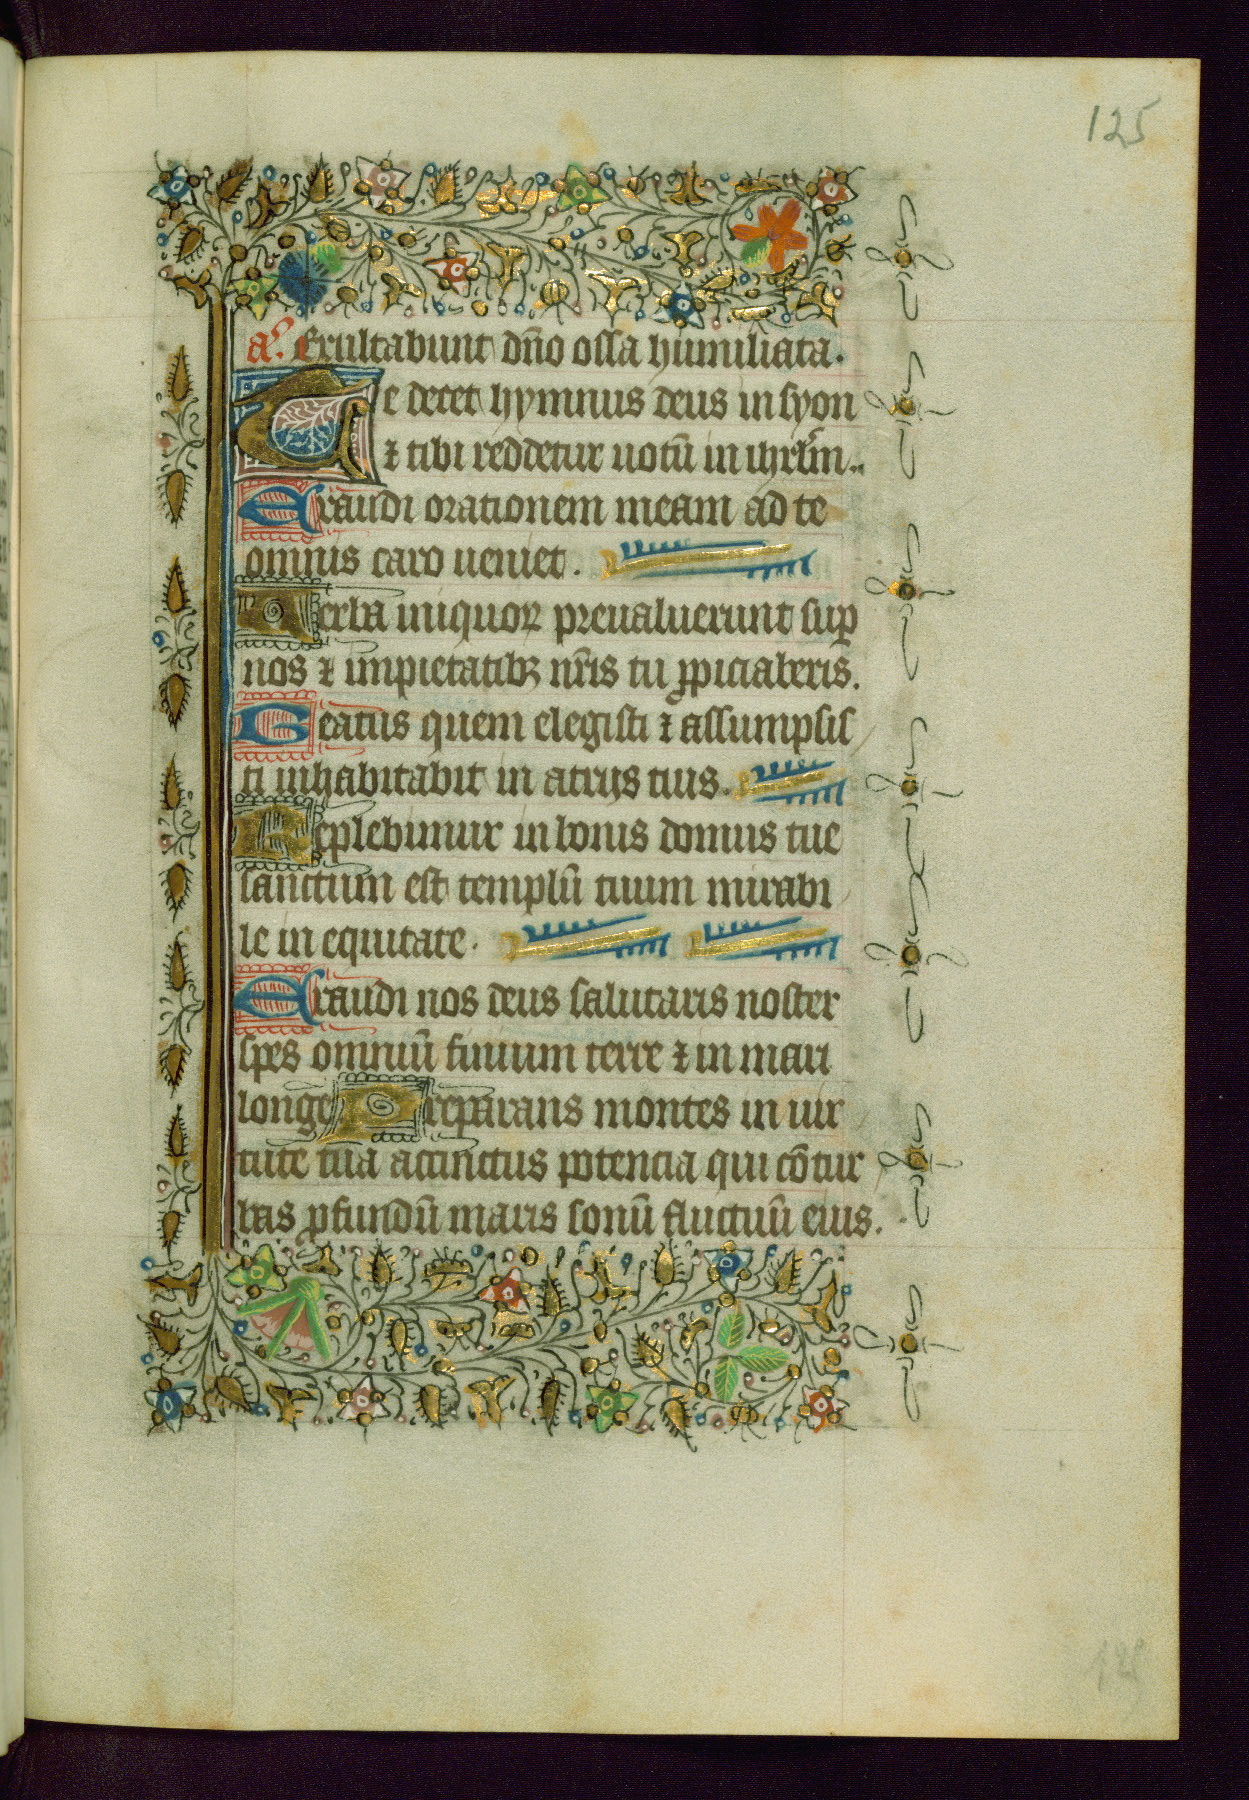 125
a&#x27; Exultabunt dn̄o ossa humiliata.
Te decet hymnus deus in syon
⁊ tibi reddetur uotū in ihrlm̄..
Exaudi orationem meam ad te
omnis caro ueniet.
Verba iniquoꝝ preualuerunt suꝑ
nos ⁊ impietatibꝫ nr̄is tu ꝓpiciaberis.
Beatus quem elegisti ⁊ assumpsis
ti inhabitabit in atrijs tuis.
Replebimur in bonis domus tue
sanctum est templū tuum mirabi
le in equitate.
Exaudi nos deus salutaris noster
spes omniū finium terre ⁊ in mari
longe Preparans montes in uir
tute tua accinctus potencia qui cōtur
bas ꝓfundū maris sonū fluctuū eius.
125